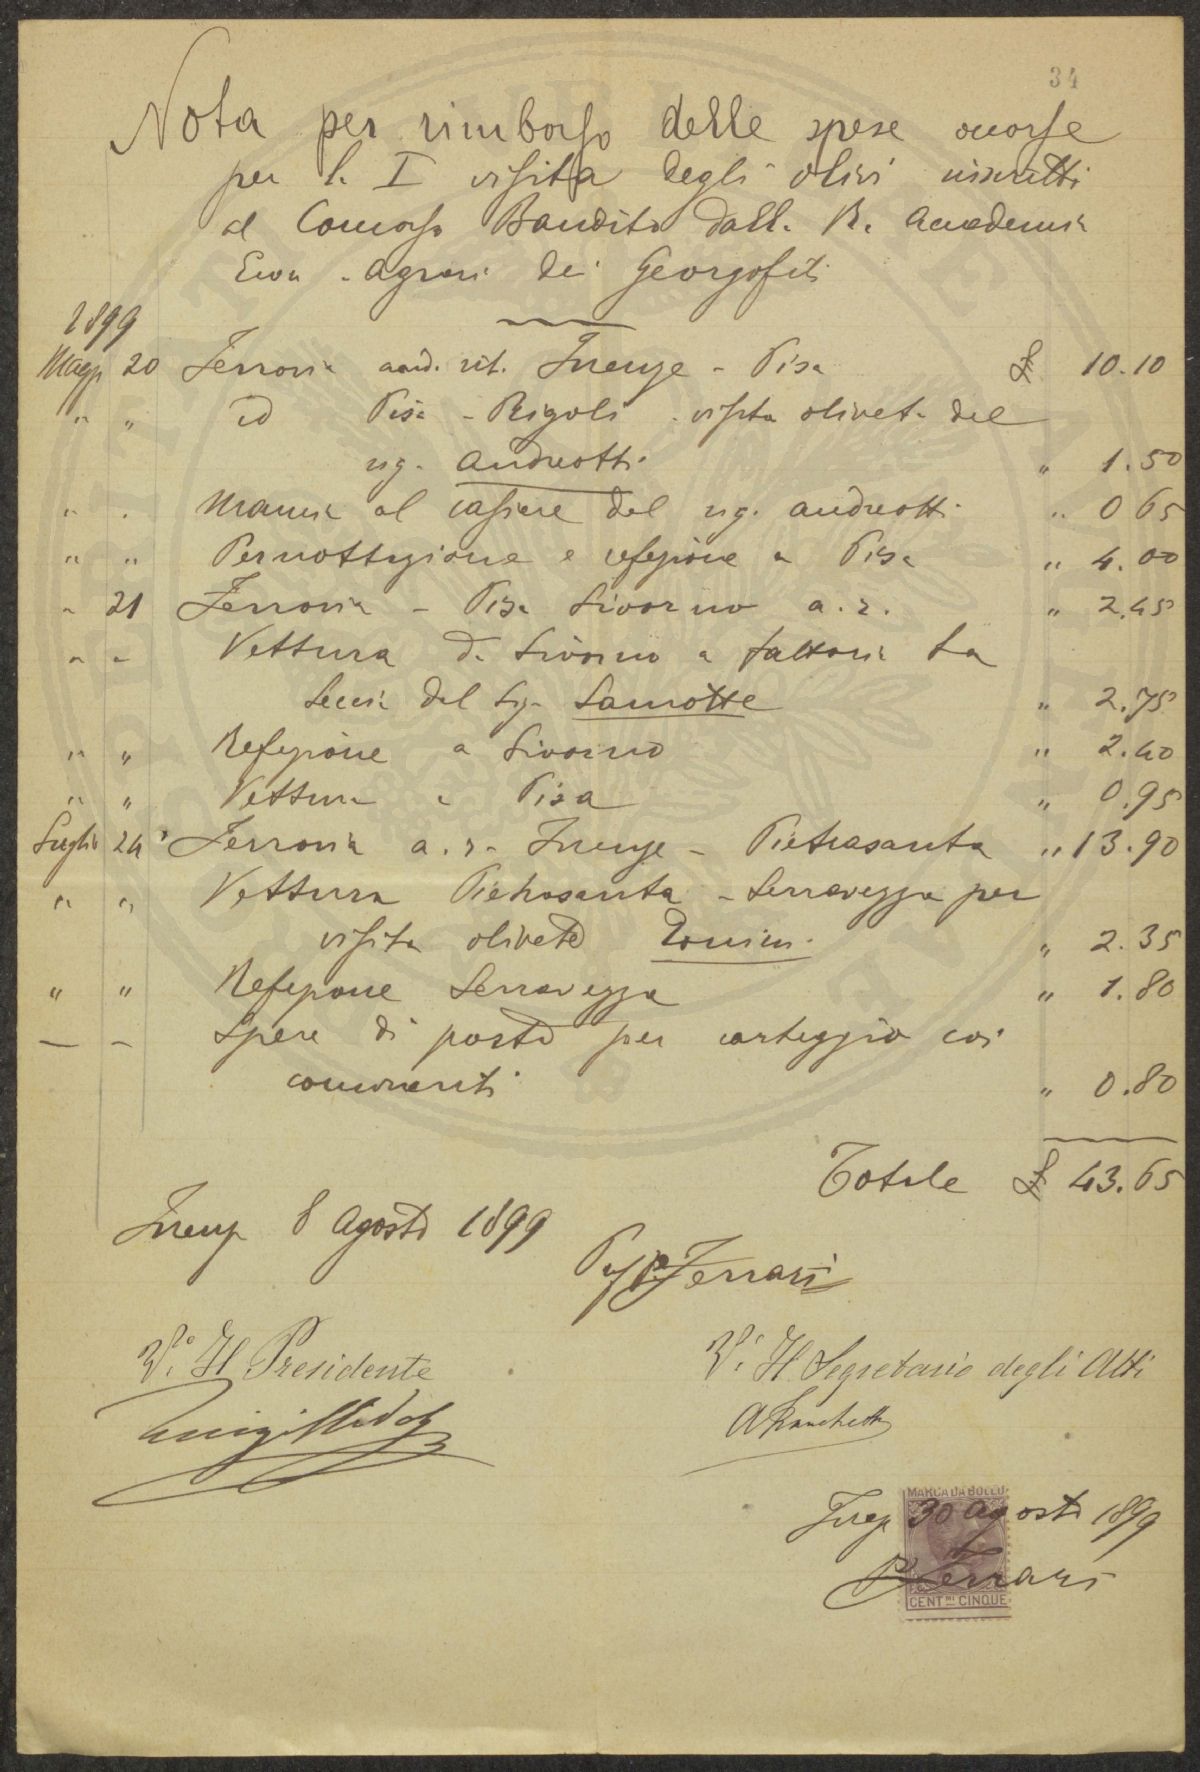 34
Nota per rimborso delle spese occorse
per la I visita degli olivi inscritti
al Concorso Bandito dalla R. Accademia
Econ - Agraria dei Georgofili
1899
Magg. 20 Ferrovia and. rit. Firenze - Pisa £ 10.10
" " id Pisa - Rigoli - visita oliveta del
sig. Andreotti " 1.50
" " Mancia al casiere del sig. Andreotti " 0 65
" " Pernottazione e refezione a Pisa " 4.00
" 21 Ferrovia - Pisa Livorno a. r. " 2.45
" " Vettura da Livorno a fattoria La
Leccia del Sig. " 2.75
" " Refezione a Livorno " 2.40
" " Vettura a Pisa " 0.95
Luglio 24 Ferrovia a. r. Firenze - Pietrasanta " 13.90
" " Vettura Pietrasanta - Serravezza per
visita oliveto " 2.35
" " Refezione Serravezza " 1.80
— — Spese di posta per carteggio coi
concorrenti " 0.80
Totale £ 43.65
Firenze 8 Agosto 1899
Ferrari
Vº. Il Presidente
Vº. Il Segretario degli Atti
MARCA DA BOLLO
Firenze 30 agosto 1899
P Ferrari
CENT.MI CINQUE